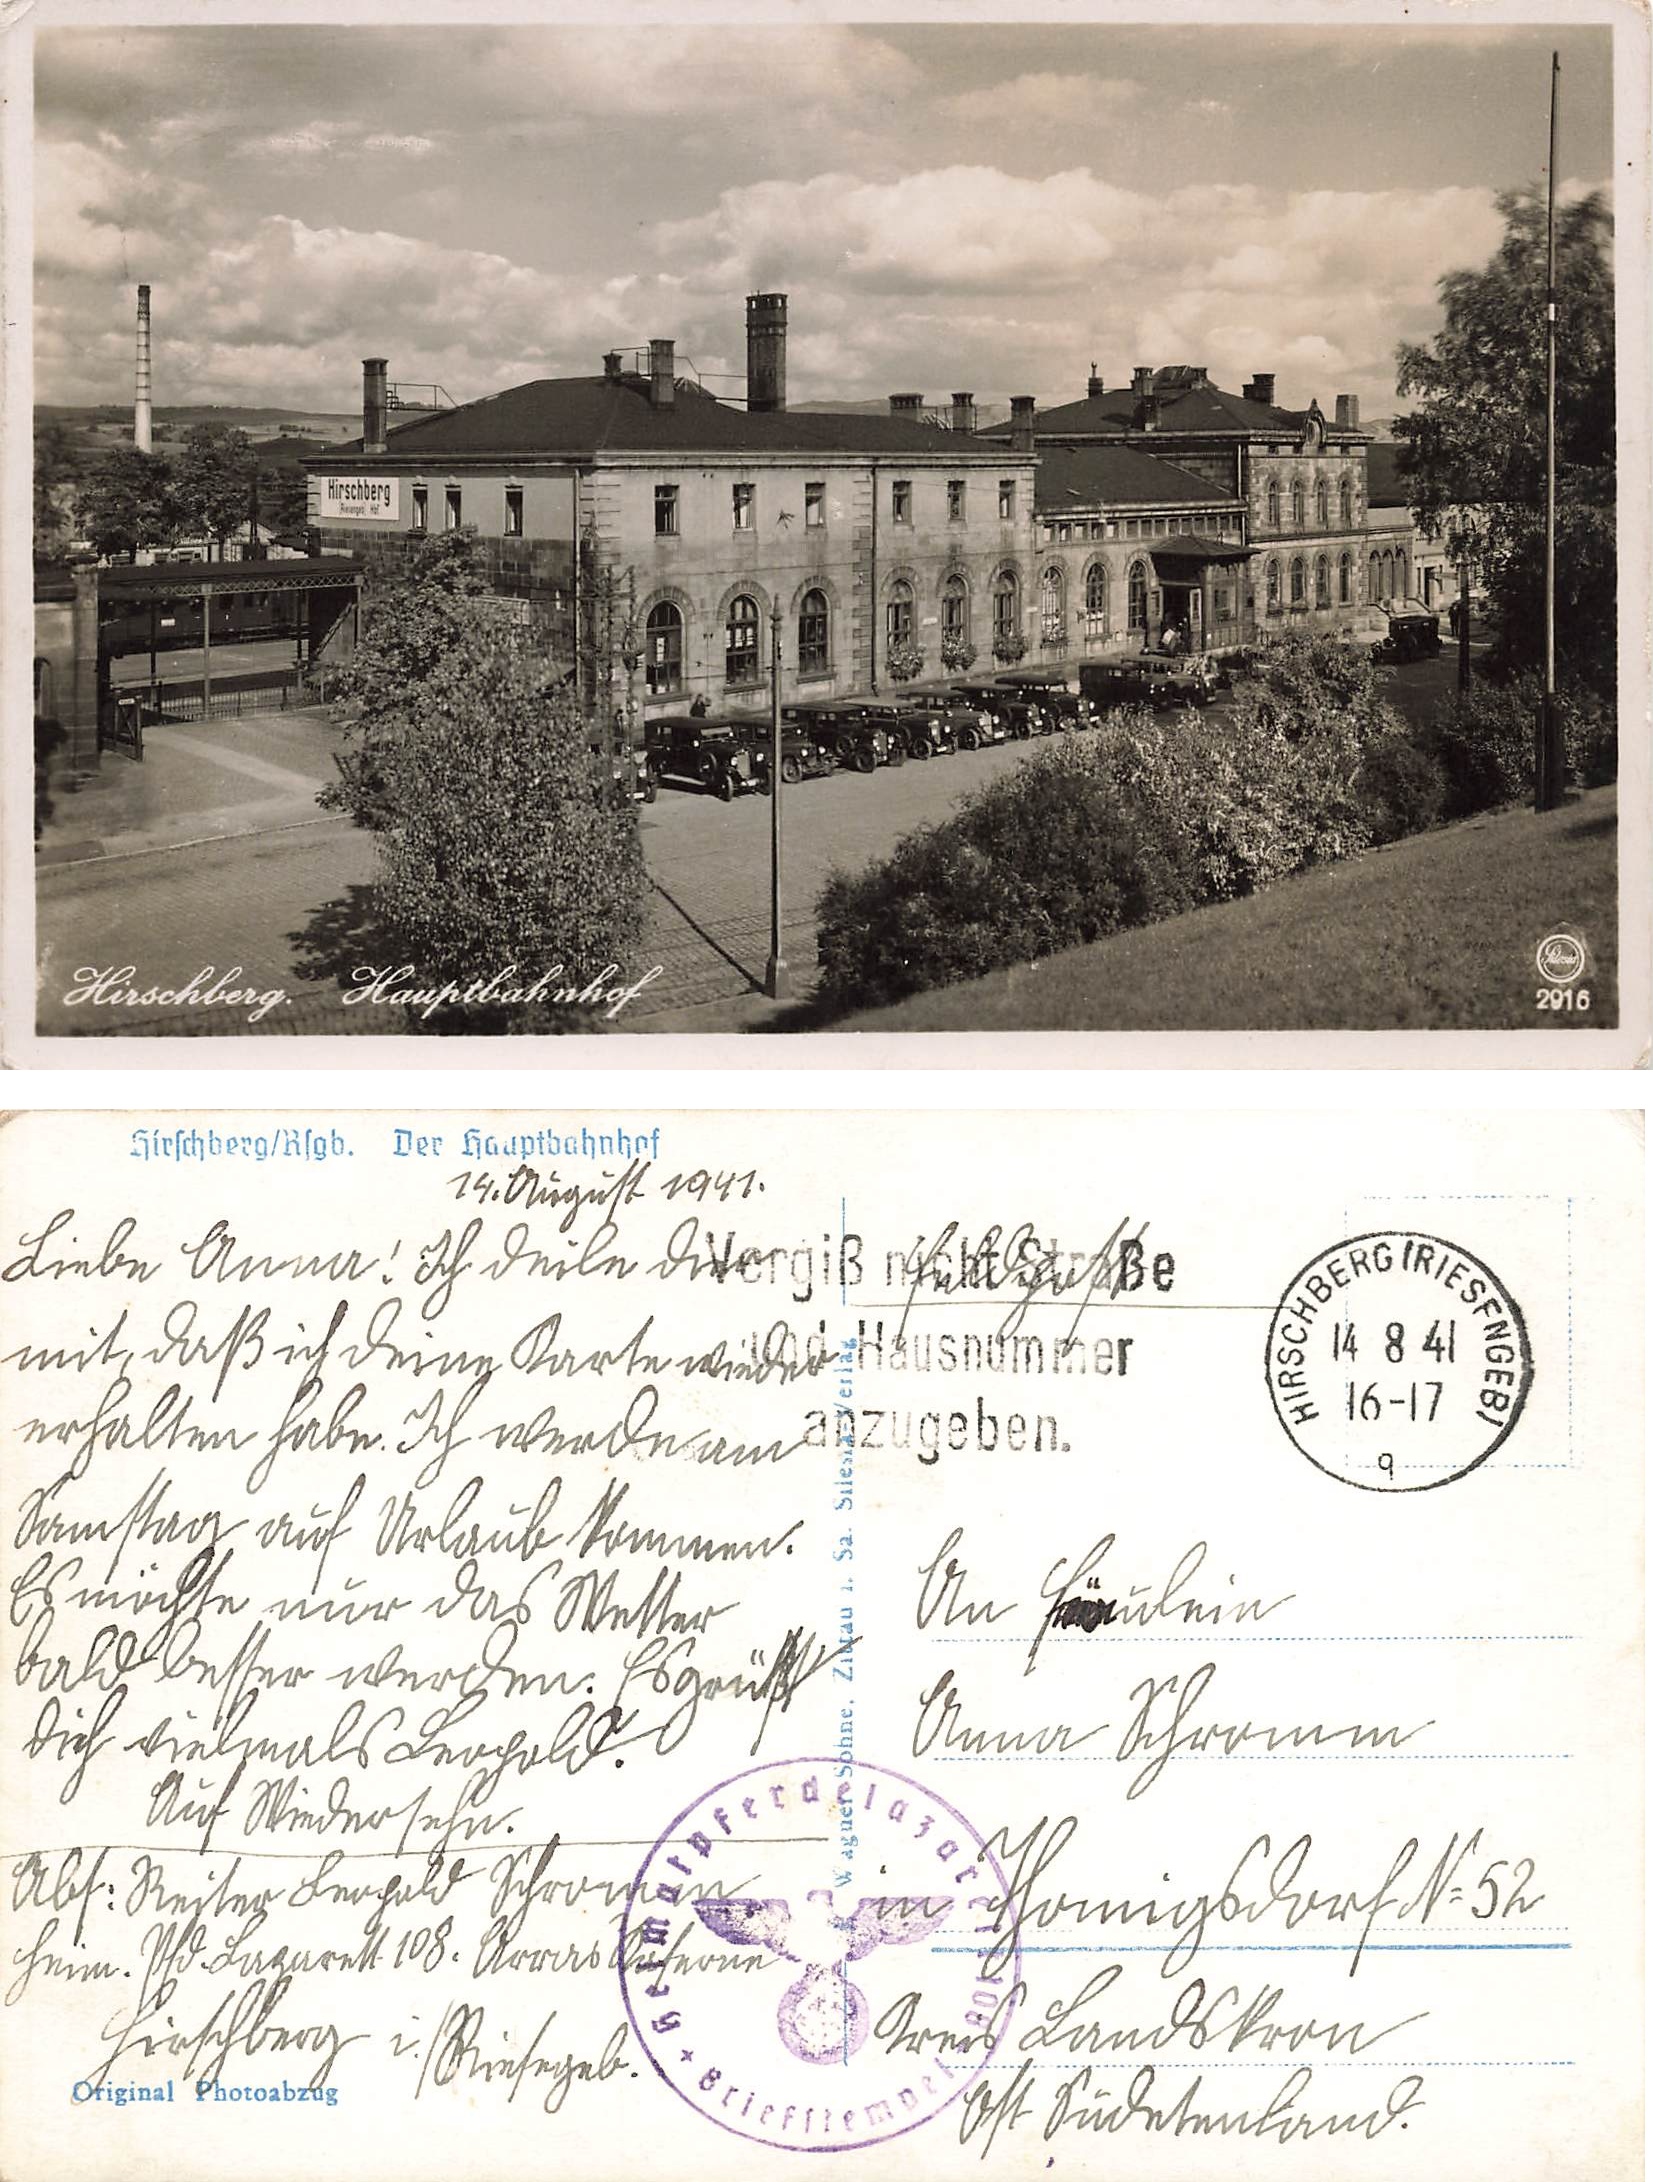 Hirschberg
(Riesengeb) Hbf.
Hirschberg. Hauptbahnhof
Silesia
2916
Hirschberg/Rsgb. Der Hauptbahnhof
14. August 1941.
Liebe Anna! Ich deile dir
mit, daß ich deine Karte wieder
erhalten habe. Ich werde am
Samstag auf Urlaub kommen.
Es möchte nur das Wetter
bald besser werden. Es grüßt
dich vielmals Leopold.
Auf Wiedersehn.
Abs: Reiter Leopold Schromm
Heim. Pfd. Lazarett 108. Arras Kaserne
Hirschberg i./Riesegeb.
Original Photoabzug
Wagner Söhne, Zittau i. Sa. Silesia-Verlag
Feldpost
Vergiß nicht Straße
und Hausnummer
anzugeben.
HIRSCHBERG (RIESENGEB)
14 8 41
16-17
q
An Fräulein
Anna Schromm
in Thomigsdorf N= 52
Kreis Landskron
Ost Südetenland.
Heimatpferdelazarett 108
* Briefstempel